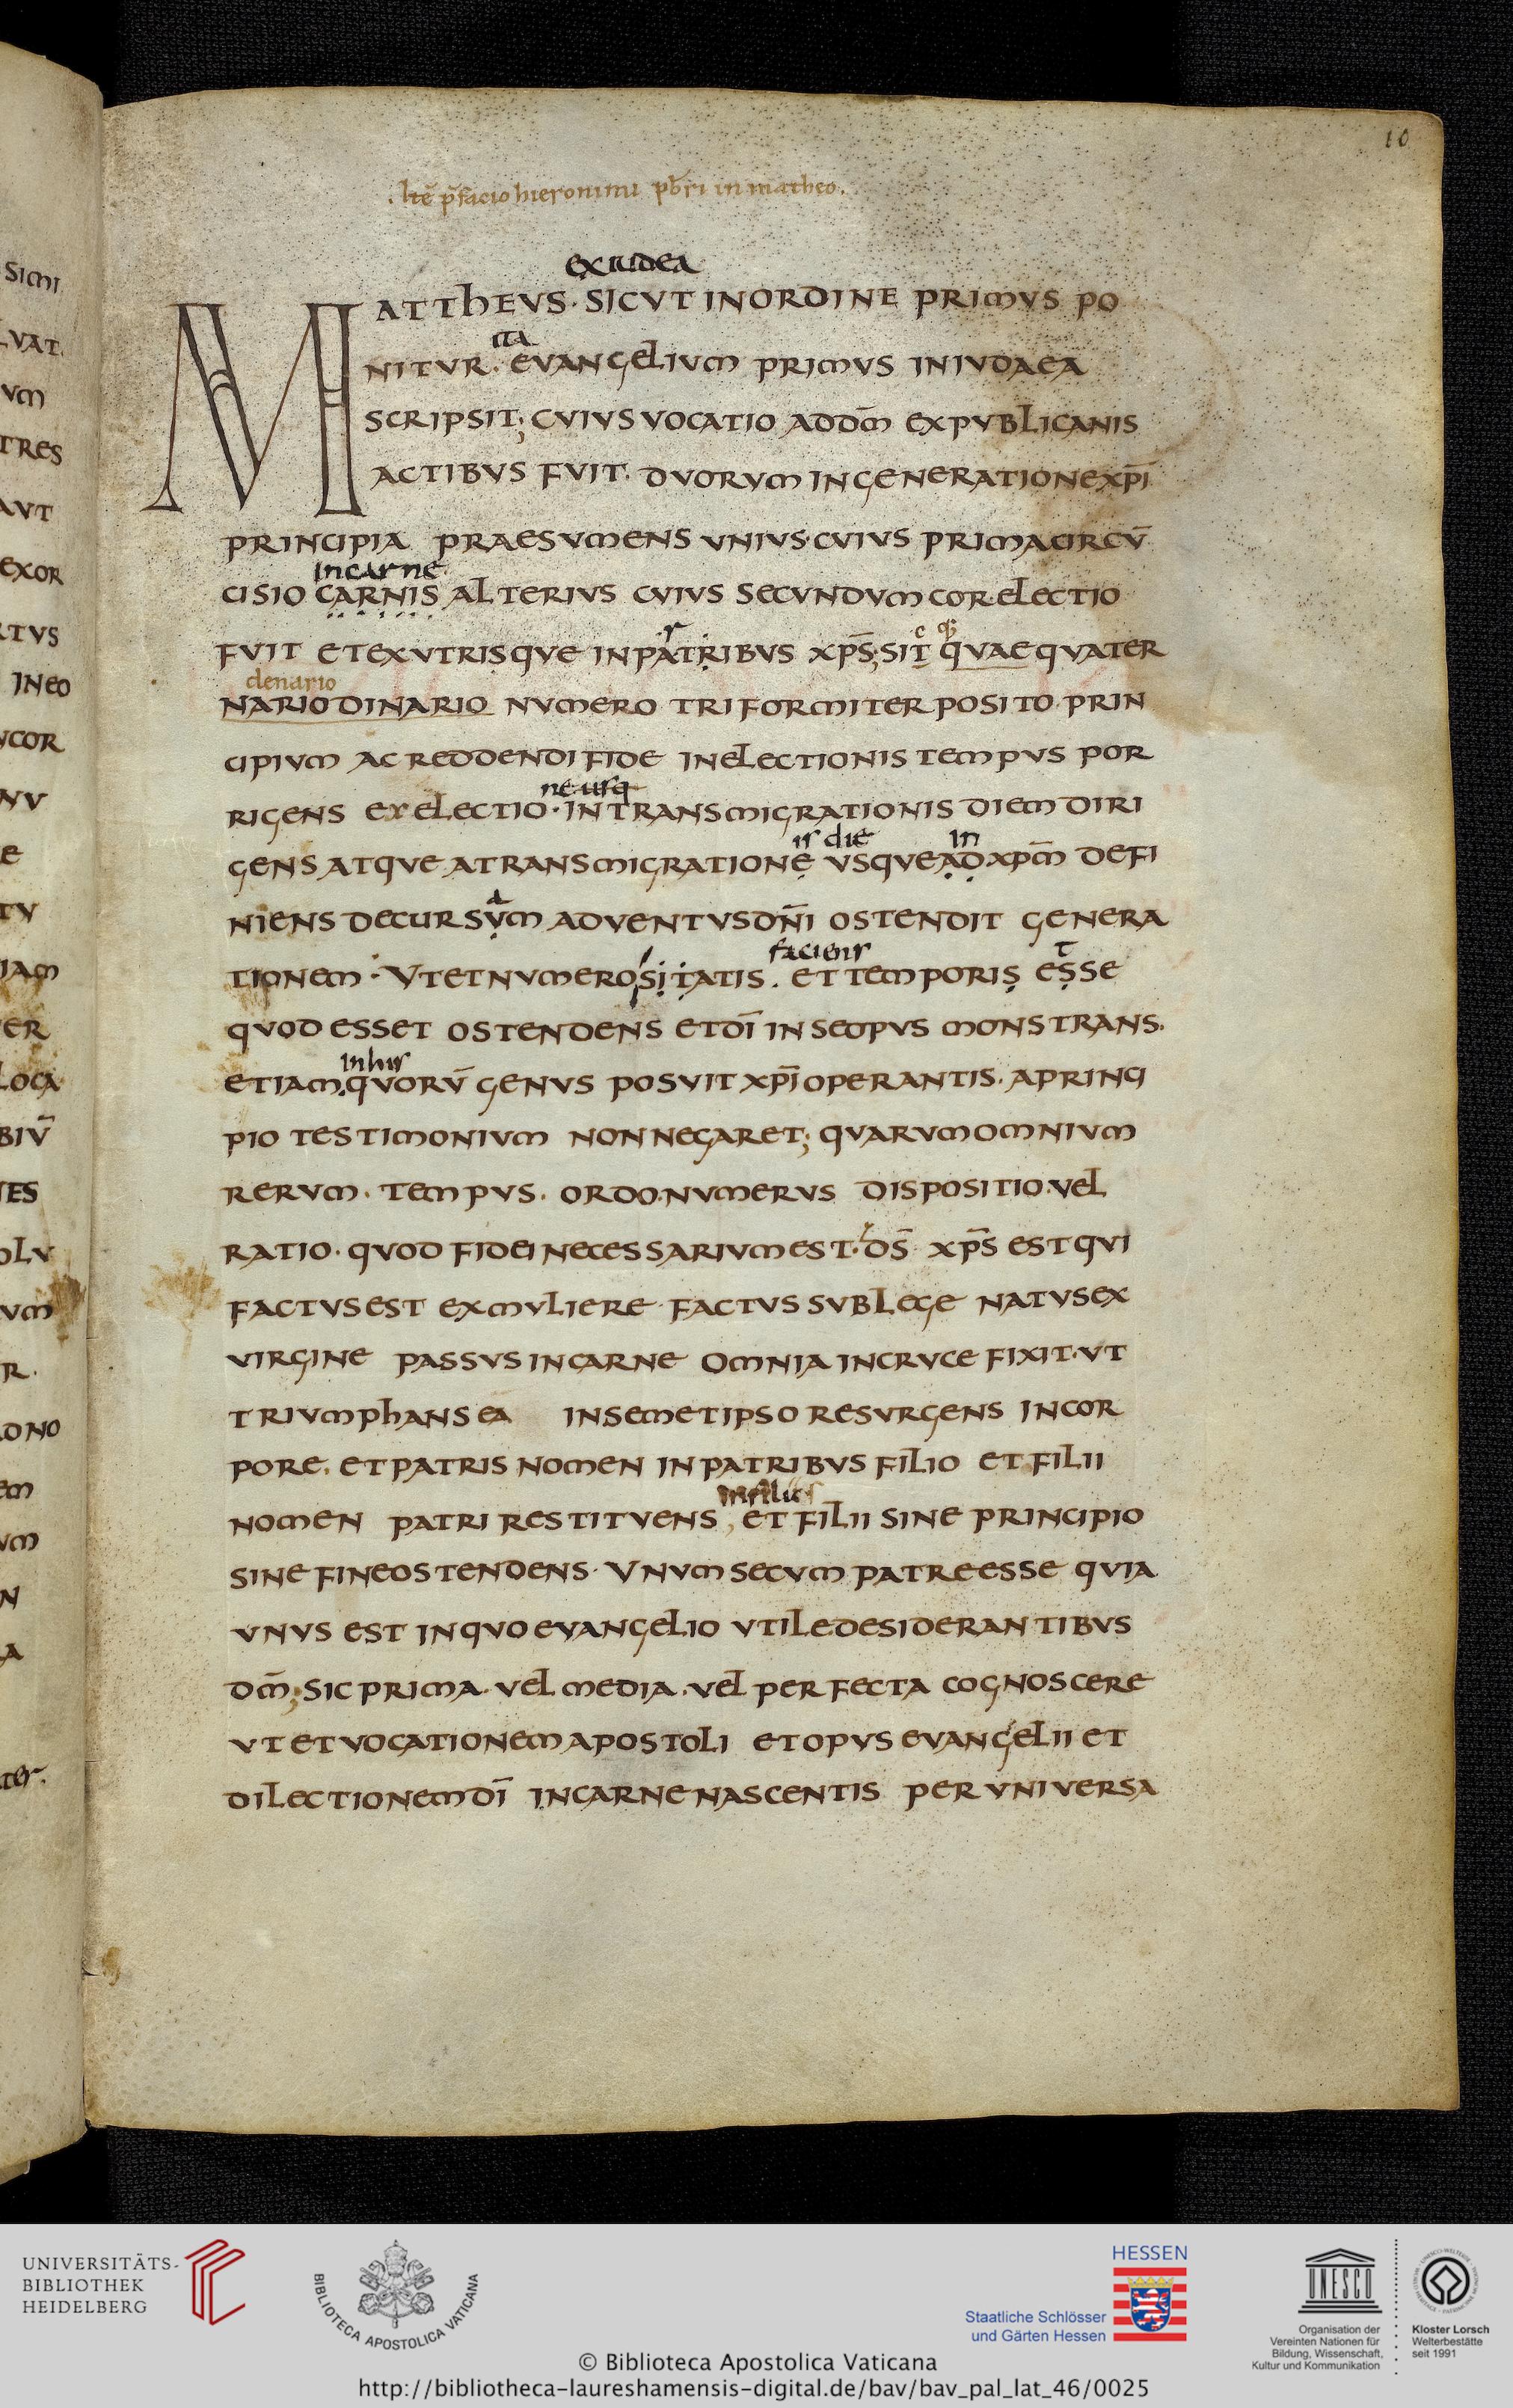 10
. Itē p̄facio hieronimi pb̄ri in matheo.
ex iudea
MATTHEVS · SICVT IN ORDINE PRIMVS PO
ita
NITVR · EVANGELIVM PRIMVS IN IVDAEA
SCRIPSIT; CVIVS VOCATIO AD DM̄ EX PVBLICANIS
ACTIBVS FVIT · DVORVM IN GENERATIONE XPĪ
PRINCIPIA PRAESVMENS VNIVS · CVIVS PRIMA CIRCV̄
in carne
CISIO CARNIS ALTERIVS CVIVS SECVNDVM COR ELECTIO
r c qꝫ
FVIT ET EX VTRISQVE IN PATRIBVS XPS̄; SIT QVAE QVATER
denario
NARIO DINARIO NVMERO TRIFORMITER POSITO PRIN
CIPIVM AC REDDENDI FIDE IN ELECTIONIS TEMPVS POR
ne usq
RIGENS EX ELECTIO · IN TRANSMIGRATIONIS DIEM DIRI
is die in
GENS ATQVE A TRANSMIGRATIONE VSQVE AD XPM̄ DEFI
a
NIENS DECURSVM ADVENTVS DN̄I OSTENDIT GENERA
faciens t
TIONEM · VT ET NVMEROSITATIS . ET TEMPORIS ESSE
QVOD ESSET OSTENDENS ET DĪ IN SE OPVS MONSTRANS.
in his
ETIAM QVORV̄ GENVS POSVIT XPĪ OPERANTIS · A PRINCI
PIO TESTIMONIVM NON NEGARET; QVARVM OMNIVM
RERVM · TEMPVS · ORDO · NVMERVS DISPOSITIO · VEL
RATIO · QVOD FIDEI NECESSARIVM EST · DS̄ XPS̄ EST QVI
FACTVS EST EX MVLIERE · FACTVS SVB LEGE NATVS EX
VIRGINE PASSVS IN CARNE OMNIA IN CRVCE FIXIT · VT
TRIVMPHANS EA IN SEMETIPSO RESVRGENS IN COR
PORE · ET PATRIS NOMEN IN PATRIBVS FILIO ET FILII
in filiis
NOMEN PATRI RESTITVENS, ET FILII SINE PRINCIPIO
SINE FINE OSTENDENS · VNVM SE CVM PATRE ESSE QVIA
VNVS EST IN QVO EVANGELIO VTILE DESIDERANTIBVS
DM̄; SIC PRIMA · VEL MEDIA · VEL PERFECTA COGNOSCERE
VT ET VOCATIONEM APOSTOLI ET OPVS EVANGELII ET
DILECTIONEM DĪ IN CARNE NASCENTIS PER VNIVERSA
SIMI
LVAT.
VM
TRES
AVT
EXOR
RTVS
IN EO
VCOR
NV
E
TV
IAM
ER
LOCA
BIV̄
IES
OLV
VM
R.
DNO
EM
VM
N
A
ter.
UNIVERSITÄTS-
BIBLIOTHEK
HEIDELBERG
BIBLIOTECA APOSTOLICA VATICANA
HESSEN
Staatliche Schlösser
und Gärten Hessen
UNESCO
Organisation der
Vereinten Nationen für
Bildung, Wissenschaft,
Kultur und Kommunikation
Kloster Lorsch
Welterbestätte
seit 1991
© Biblioteca Apostolica Vaticana
http://bibliotheca-laureshamensis-digital.de/bav/bav_pal_lat_46/0025